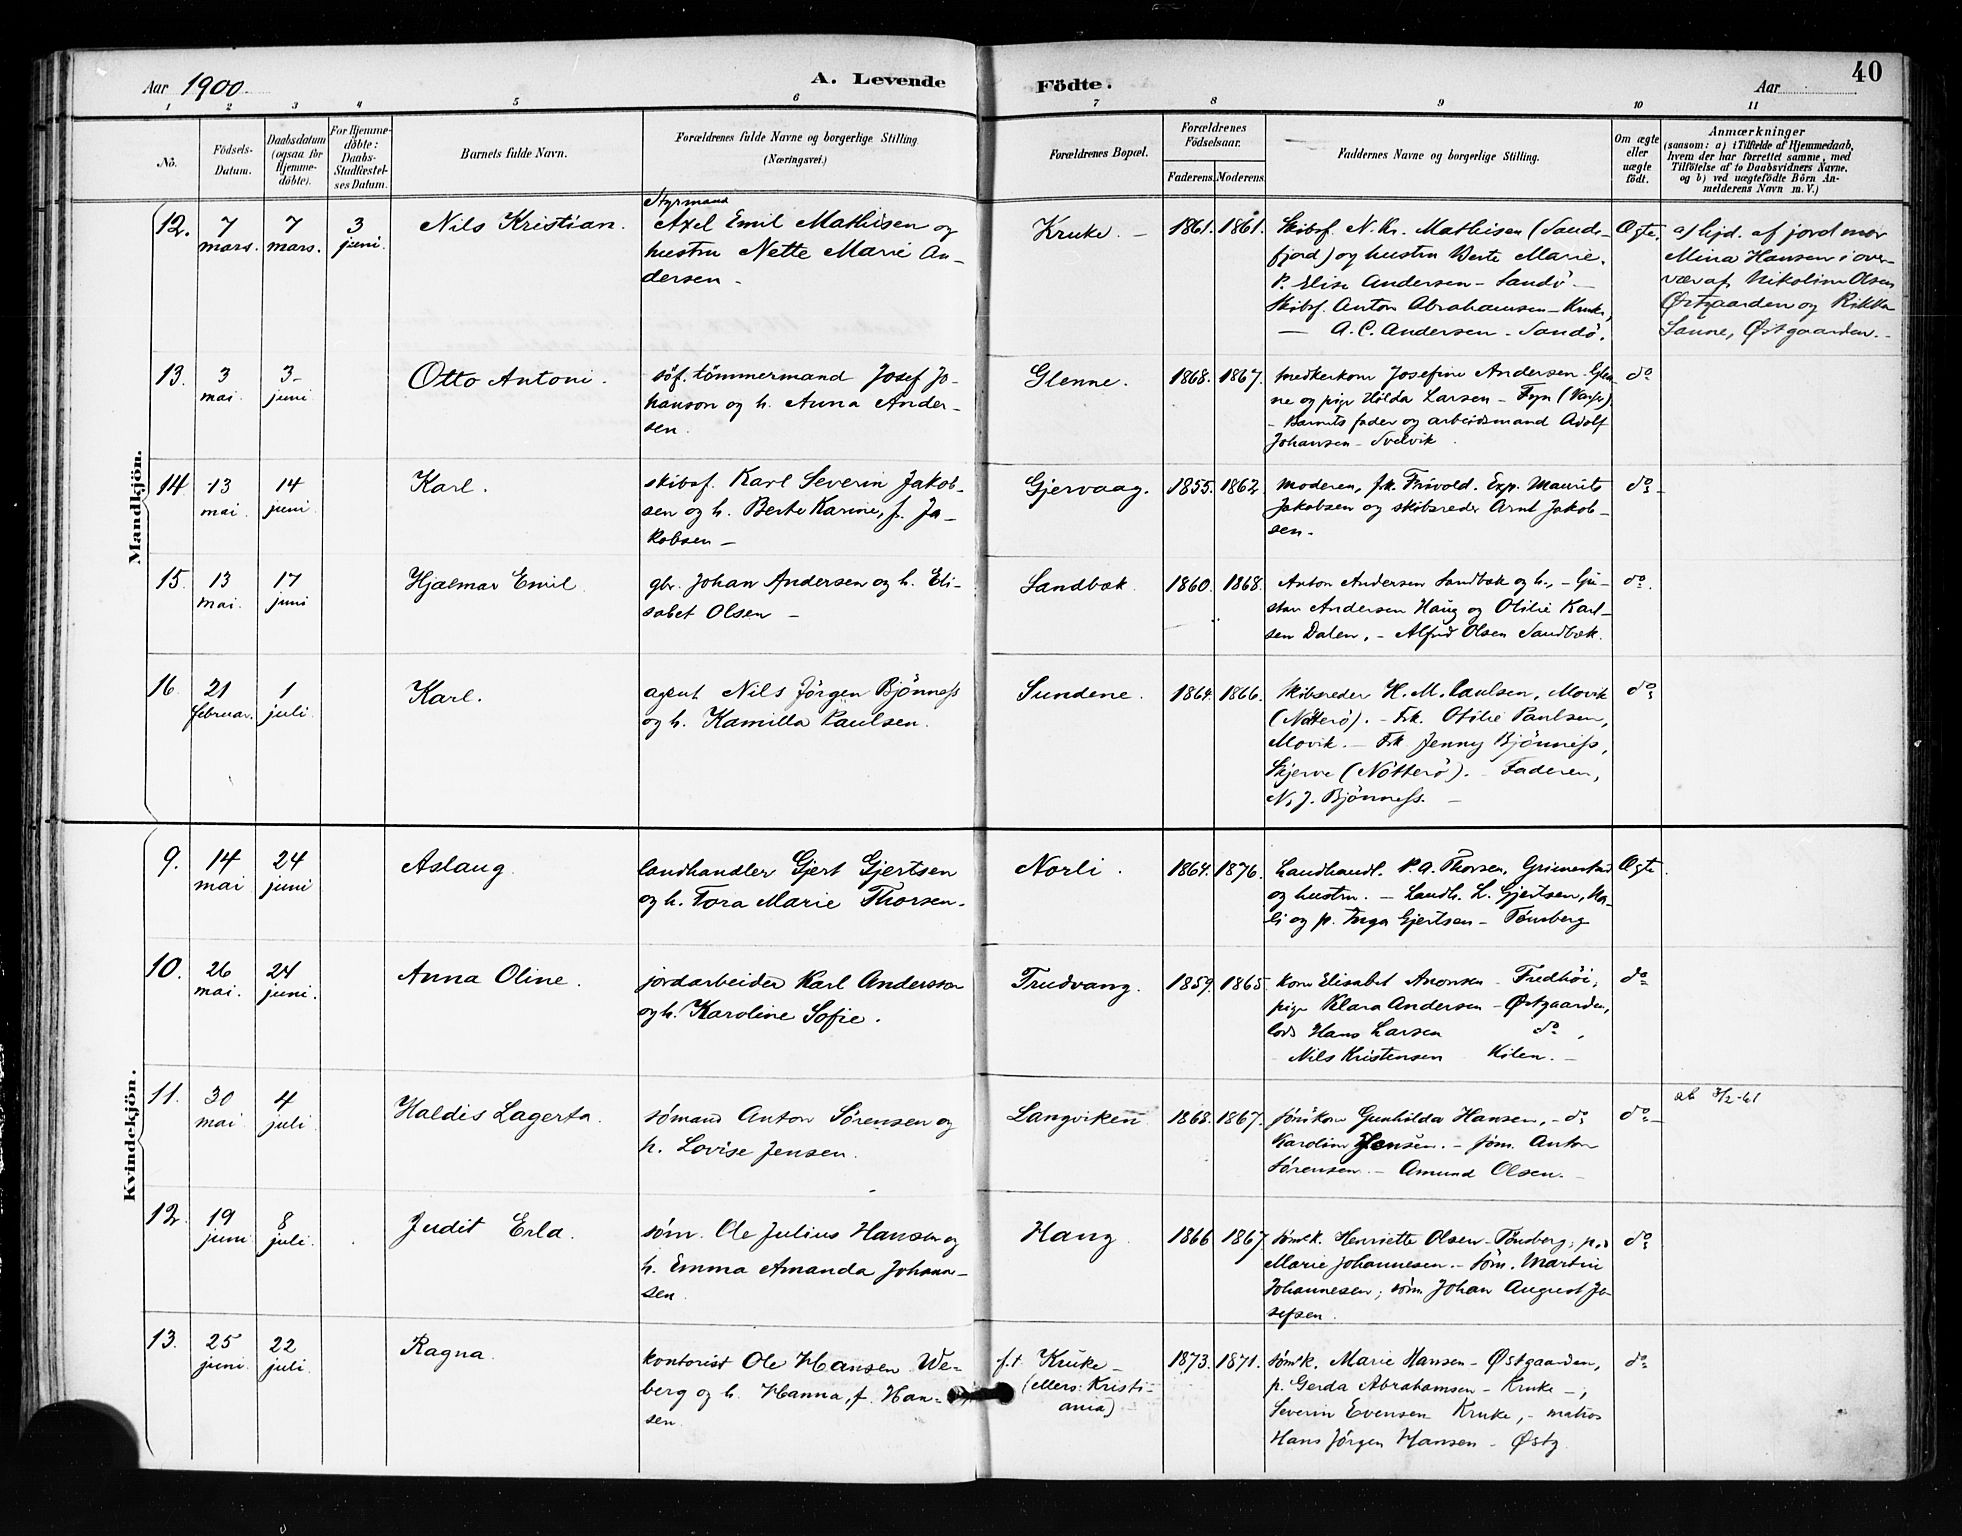 40
Aar 1900. A. Levende Födte. Aar
1 2 3 4 5 6 7 8 9 10 11
No. Födsels-Datum. Daabsdatum (ogsaa for Hjemme-döbte). For Hjemme-döbte: Daabs-Stadfæstel-ses Datum. Barnets fulde Navn. Forældrenes fulde Navne og borgerlige Stilling (Næringsvei.) Forældrenes Bopæl. Forældrenes Födselsaar. Faderens. Moderens. Faddernes Navne og borgerlige Stilling. Om ægte eller uægte födt. Anmærkninger
(saasom: a) i Tilfælde af Hjemmedaab,
hvem der har forrettet samme, med
Tilföielse af to Daabsvidners Navne.
og b) ved uægtefödte Börn An-
melderens Navn m. V.)
Mandkjön.
12. 7 mars. 7 mars. 3 juni. Nils Kristian.
Styrmand
Axel Emil Mathisen og
hustru Nette Marie An-
dersen.
Kruke. 1861. 1861.
Skibsf. N. Kr. Mathisen (Sande-
fjord) og hustru Berte Marie.
P. Elise Andersen - Sandö -
Skibsf. Anton Abrahamsen - Kruke,
A. C. Andersen - Sandö.
Ægte.
a) hjd. af jordmor
Mina Hansen i over-
vær af Nikoline Olsen
Østgaarden og Rikka
Sanne, Østgaarden.
13. 3 mai. 3 juni. Otto Antoni.
söf. tömmermand Josef Jo-
hanson og h. Anna Ander-
sen.
Glenne. 1868. 1867.
Josefine Andersen - Glen-
ne og pige Hilda Larsen - Fyn
- Barnets fader og arbeidsmand Adolf
Johansen - Svelvik.
do
14 13 mai. 14 juni. Karl.
skibsf. Karl Severin Jakob-
sen og h. Berte Karine, f. Ja-
kobsen -
Gjervaag. 1855. 1862.
Moderen, frk. Exp. Maurits
Jakobsen og skibsreder Arnt Jakob-
sen.
do
15. 13 mai. 17 juni Hjalmar Emil
gbr. Johan Andersen og h. Eli-
sabet Olsen -
Sandbæk. 1860. 1868.
Anton Andersen Sandbæk og h., - Gu-
stav Andersen Haug og Otilie Karl-
sen Dalen, - Alfred Olsen Sandbæk.
do
16. 21 februar. 1 juli. Karl.
agent Nils Jörgen Bjönness
og h. Kamilla Paulsen.
Sundene. 1864. 1866.
Skibsreder H. M. Paulsen, Movik
(Nötterö). - Frk. Otilie Paulsen,
Movik. - Frk Jenny Bjönness,
Skjerve (Nötterö). - Faderen,
N. J. Bjönness. -
do
Kvindekjön.
9. 14 mai 24 juni Aslaug.
landhandler Gjert Gjertsen
og h. Tora Marie Thorsen.
Norli. 1864. 1876.
Landhandl. P. A. Thorsen, Grimestad
og hustru. - Landh. L. Gjertsen, Nor-
li og p. Inga Gjertsen - Tönsberg
Ægte.
10. 26 mai. 24 juni. Anna Oline.
jordarbeider Karl Andersson
og h. Karoline Sofie.
Trudvang. 1859. 1865.
kone Elisabet Aronsen - Fredhöi,
pige Klara Andersen - Østgaarden,
lods Hans Larsen do,
Nils Kristensen Kilen. -
do
11. 30 mai 4 juli. Haldis Lagerta.
sømand Anton Sörensen og
h. Lovise Jensen.
Langviken 1868. 1867.
söm.kone Gunhilda Hansen, - do
Karoline Jensen. - söm. Anton
Sörensen. - Amund Olsen. -
do
ab 3/2-61
12. 19 juni 8 juli. Judit Erla.
søm. Ole Julius Hansen og
h. Emma Amanda Johan-
sen.
Haug. 1866 1867
sömk. Henriette Olsen - Tönsberg, p.
Marie Johannesen. - söm. Martin
Johannesen; söm. Johan August Jo-
sefsen.
do
13. 25 juni. 22 juli. Ragna.
kontorist Ole Hansen We-
berg og h. Hanna, f. Han-
sen.
f.t. Kruke -
(ellers: Kristi-
ania)
1873. 1871.
sömk. Marie Hansen - Østgaarden,
p. Gerda Abrahamsen - Kruke -,
Severin Evensen Kruke, - matros
Hans Jörgen Hansen - Østg.
do